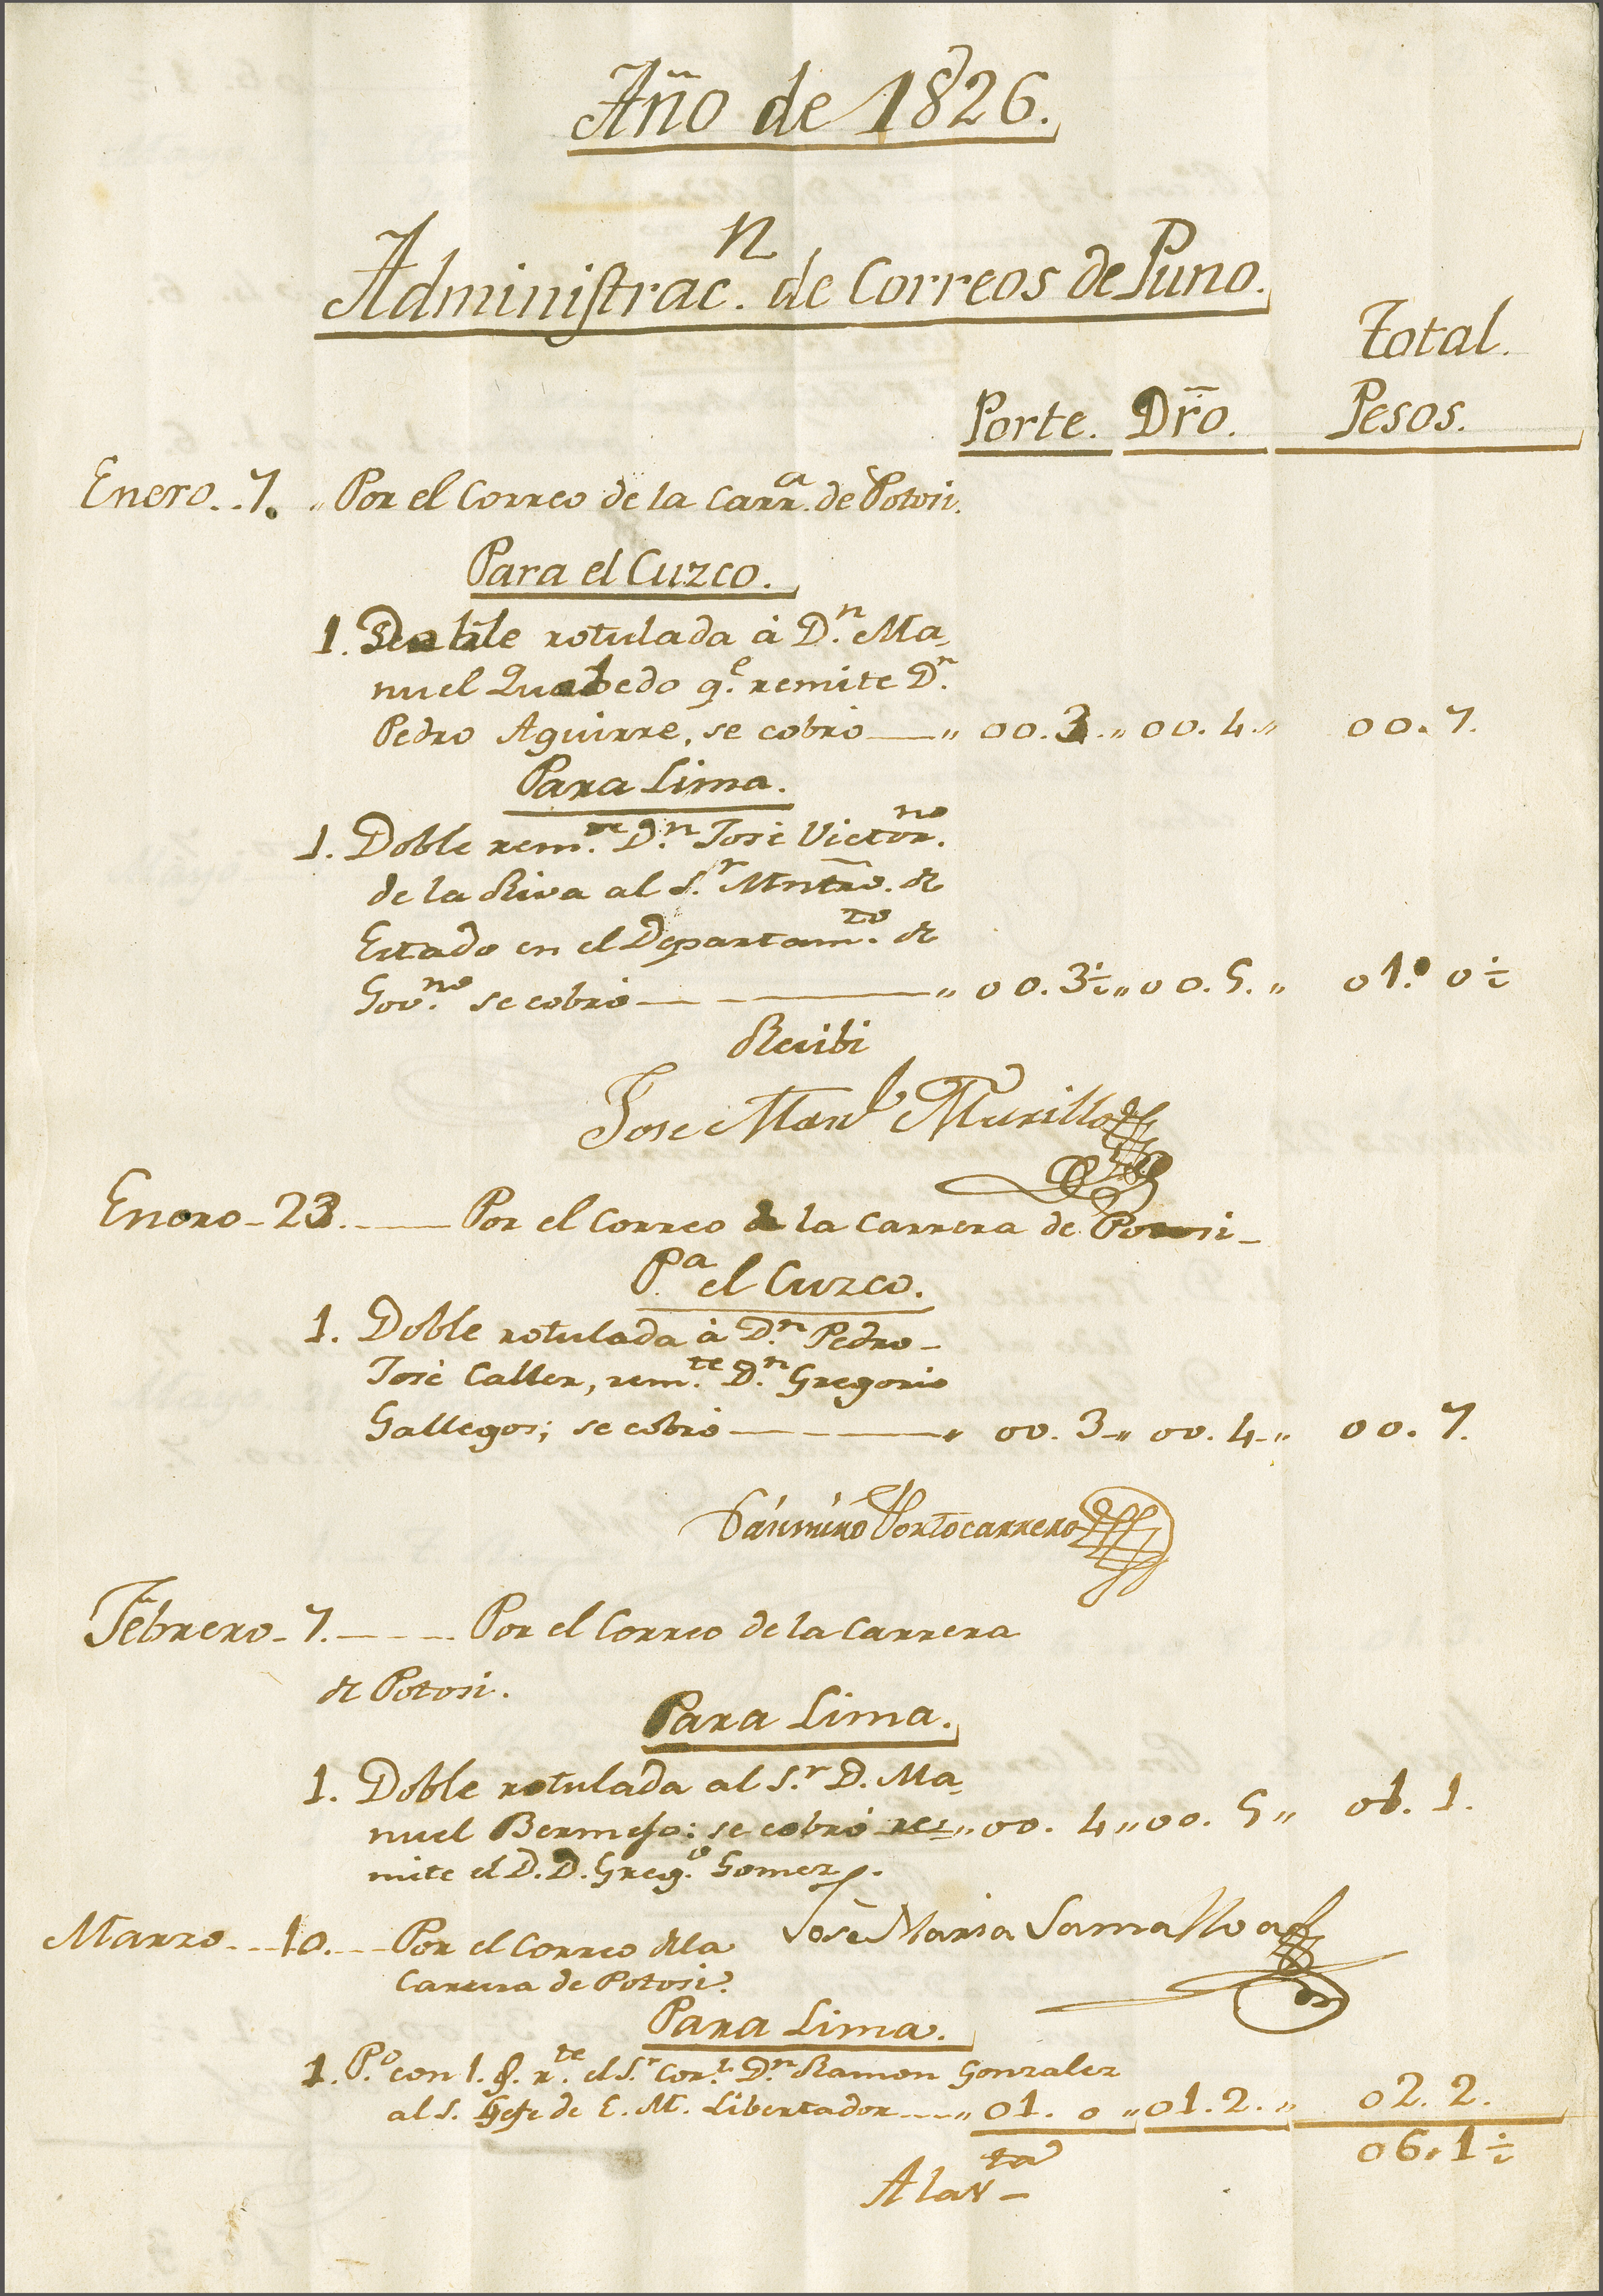 Año de 1826.
Administrac.n de Correos de Puno.
Total.
Porte. Dr̃o. Pesos.
Enero..7. „Por el Correo de la Carr.a de Potosi.
Para el Cuzco.
1. Doble rotulada à D.n Ma-
nuel q.e remite D.n
Pedro Aguirre, se cobró — „ 00.3.„ 00.4.„ 00.7.
Para Lima.
1. Doble rem.te D.n José Victor.no
de la Riva al S.r Mntr̃o. de
Estado en el Departam.to de
Gov.no se cobró — — — „ 00.3½„ 00.5.„ 01.0½
Recibi
Jose Man.l Murillo
Enero - 23. — Por el Correo de la Carrera de Potosi -
P.a el Cuzco.
1. Doble rotulada à D.n Pedro -
José Caller, rem.te D.n Gregorio
Gallegos; se cobró — — — „ 00.3 „ 00.4 „ 00.7.
Portocarrero
Febrero - 7. — — — Por el Correo de la Carrera
de Potosi.
Para Lima.
1. Doble rotulada al S.r D. Ma-
nuel Bermejo: se cobró re- „ 00. 4 „ 00. 5 „ 01. 1.
mite el D. D. Greg.o Gomez.
José Maria
Marzo - - 10. - - Por el Correo de la
Carrera de Potosi.
Para Lima.
1. P.o con 1. r.te el S.r Cor.l D.n Ramon Gonzalez
al S. Gefe de E. M. Libertador — „ 01. 0 „ 01.2. „ 02.2.
06.1½
A la v.ta -